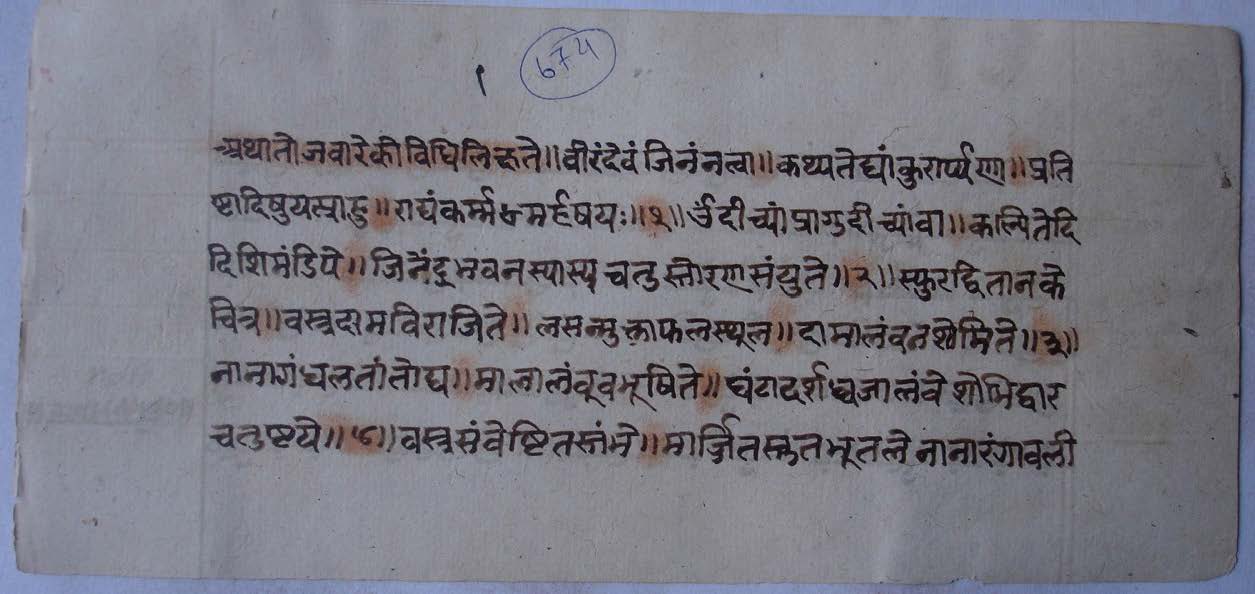 १ ६७५
अथातो जवारेकी विधि लिख्यते॥ वीरं देवं जिनं नत्वा॥ कथ्यते द्यांकुरार्प्पण॥ प्रति
ष्टादिषु यस्माहु॥ राद्यं कर्म्म महर्षयः॥१॥ उदीच्यां प्रागुदीच्यां वा॥ कल्पिते दि
दिशि मंडिपे॥ जिनेंद्र भवनस्यास्य चतुस्तोरण संयुते॥२॥ स्फुरद्वितानके
चित्र॥ वस्त्रदाम विराजिते॥ लसन्मुक्ताफल स्थूल॥ दामालंवन शोभिते॥३॥
नाना गंधलतांतोद्य॥ मालालंवूवभूषिते॥ घंटादर्शध्वजालंवे शोभिद्वार
चतुष्टये॥४॥ वस्त्र संवेष्टितस्तंभे॥ मार्ज्जितस्कृतभूतले नाना रंगावली